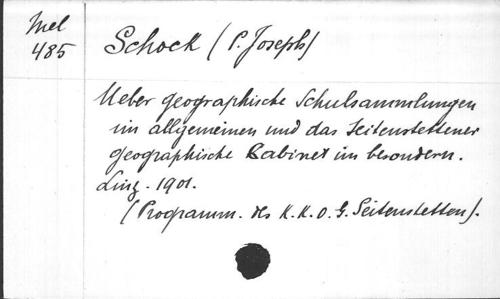 Mel
485
Schock (P. Joseph)
Ueber geographische Schulsammlungen
im allgemeinen und das Seitenstettener
geographische Cabinet im besondern.
Linz. 1901.
(Programm. des K. K. O. G. Seitenstetten).